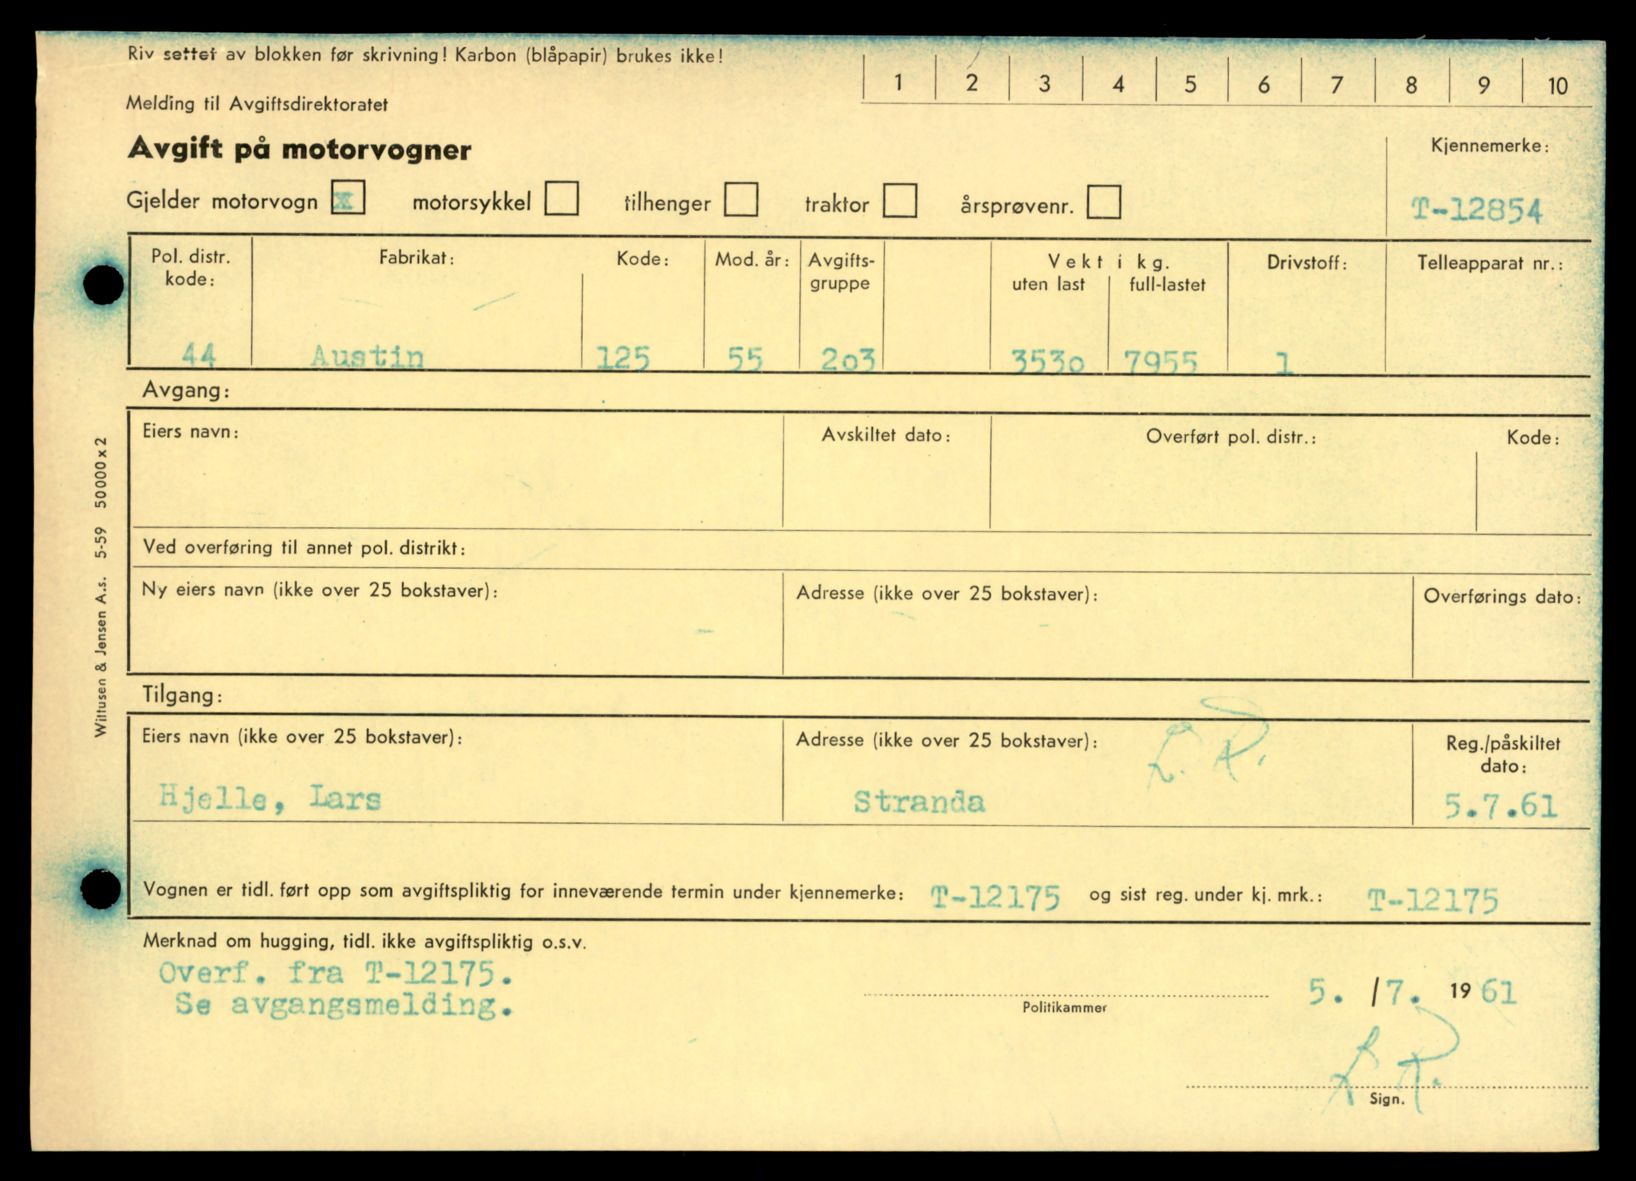 Riv settet av blokken før skrivning! Karbon (blåpapir) brukes ikke!
1 2 3 4 5 6 7 8 9 10
Melding til Avgiftsdirektoratet
Avgift på motorvogner
Kjennemerke:
Gjelder motorvogn x motorsykkel tilhenger traktor årsprøvenr.
T-12854
Pol. distr. kode: Fabrikat: Kode: Mod. år: Avgifts-gruppe Vekt i kg. uten last full-lastet Drivstoff: Telleapparat nr.:
44 Austin 125 55 2o3 353o 7955 1
Avgang:
Eiers navn: Avskiltet dato: Overført pol. distr.: Kode:
Ved overføring til annet pol. distrikt:
Ny eiers navn (ikke over 25 bokstaver): Adresse (ikke over 25 bokstaver): Overførings dato:
Tilgang:
Eiers navn (ikke over 25 bokstaver): Adresse (ikke over 25 bokstaver): L. R. Reg./påskiltet dato:
Hjelle, Lars Stranda 5.7.61
Vognen er tidl. ført opp som avgiftspliktig for inneværende termin under kjennemerke: T-12175 og sist reg. under kj. mrk.: T-12175
Merknad om hugging, tidl. ikke avgiftspliktig o.s.v.
Overf. fra T-12175.
Se avgangsmelding.
Politikammer
5. /7. 1961
L R.
Sign.
Wittusen & Jensen A.s. 5-59 50000x2